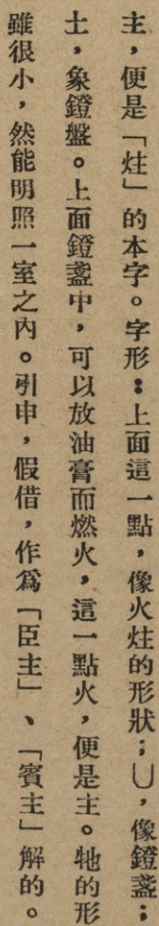 主，便是「炷」的本字。字形：上面這一點，像火炷的形狀；㇄，像鐙盞；
土，象鐙盤。上面鐙盞中，可以放油膏而燃火，這一點火，便是主。牠的形
雖很小，然能明照一室之內。引申，假借，作爲「臣主」、「賓主」解的。